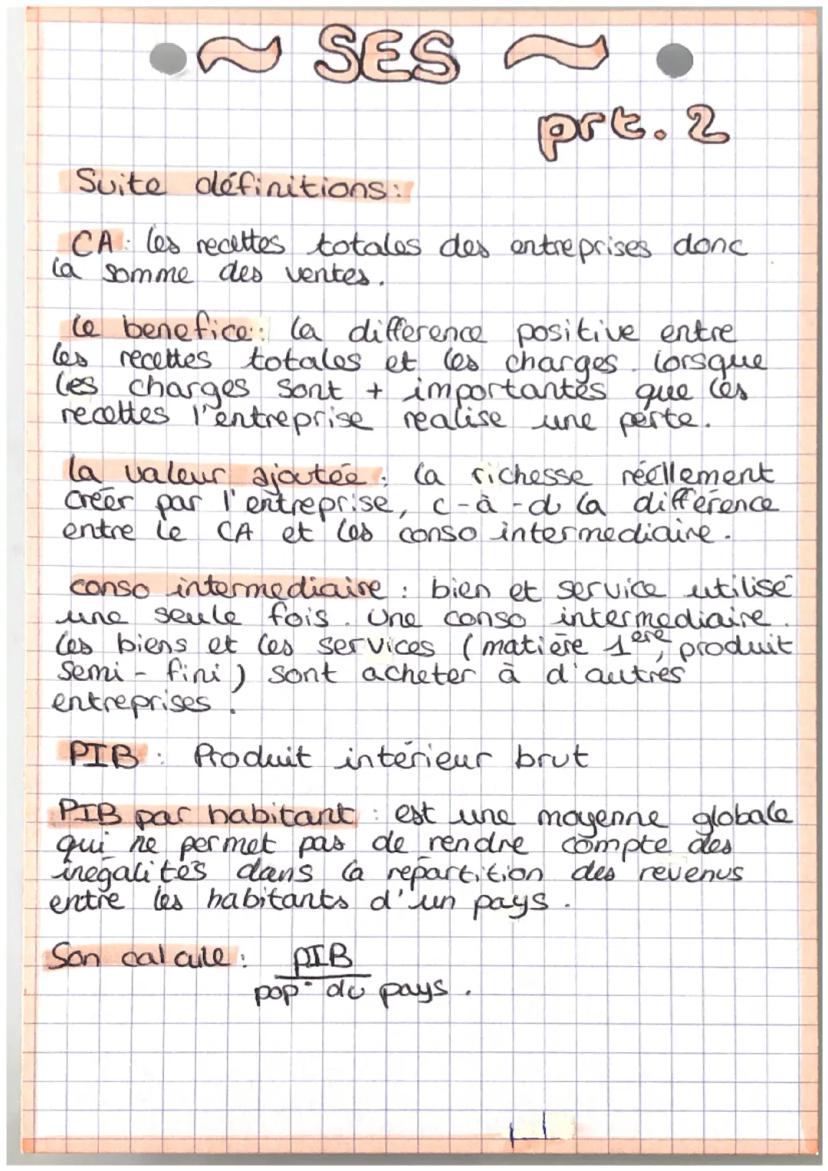 ~ SES ~
prt. 2
Suite définitions:
CA : les recettes totales des entreprises donc
la somme des ventes.
le benefice : la difference positive entre
les recettes totales et les charges. lorsque
les charges sont + importantes que les
recettes l'entreprise realise une perte.
la valeur ajoutée : la richesse réellement
créer par l'entreprise, c-à-d la différence
entre le CA et les conso intermediaire.
conso intermediaire : bien et service utilisé
une seule fois. Une conso intermediaire.
les biens et les services (matière 1ère, produit
semi-fini) sont acheter à d'autres
entreprises.
PIB : Produit intérieur brut
PIB par habitant : est une moyenne globale
qui ne permet pas de rendre compte des
inégalités dans la répartition des revenus
entre les habitants d'un pays.
Son calcule : PIB
pop° du pays.